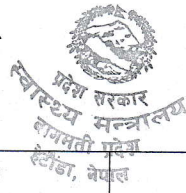 प्रदेश सरकार
स्वास्थ्य मन्त्रालय
बागमती प्रदेश
हेटौंडा, नेपाल